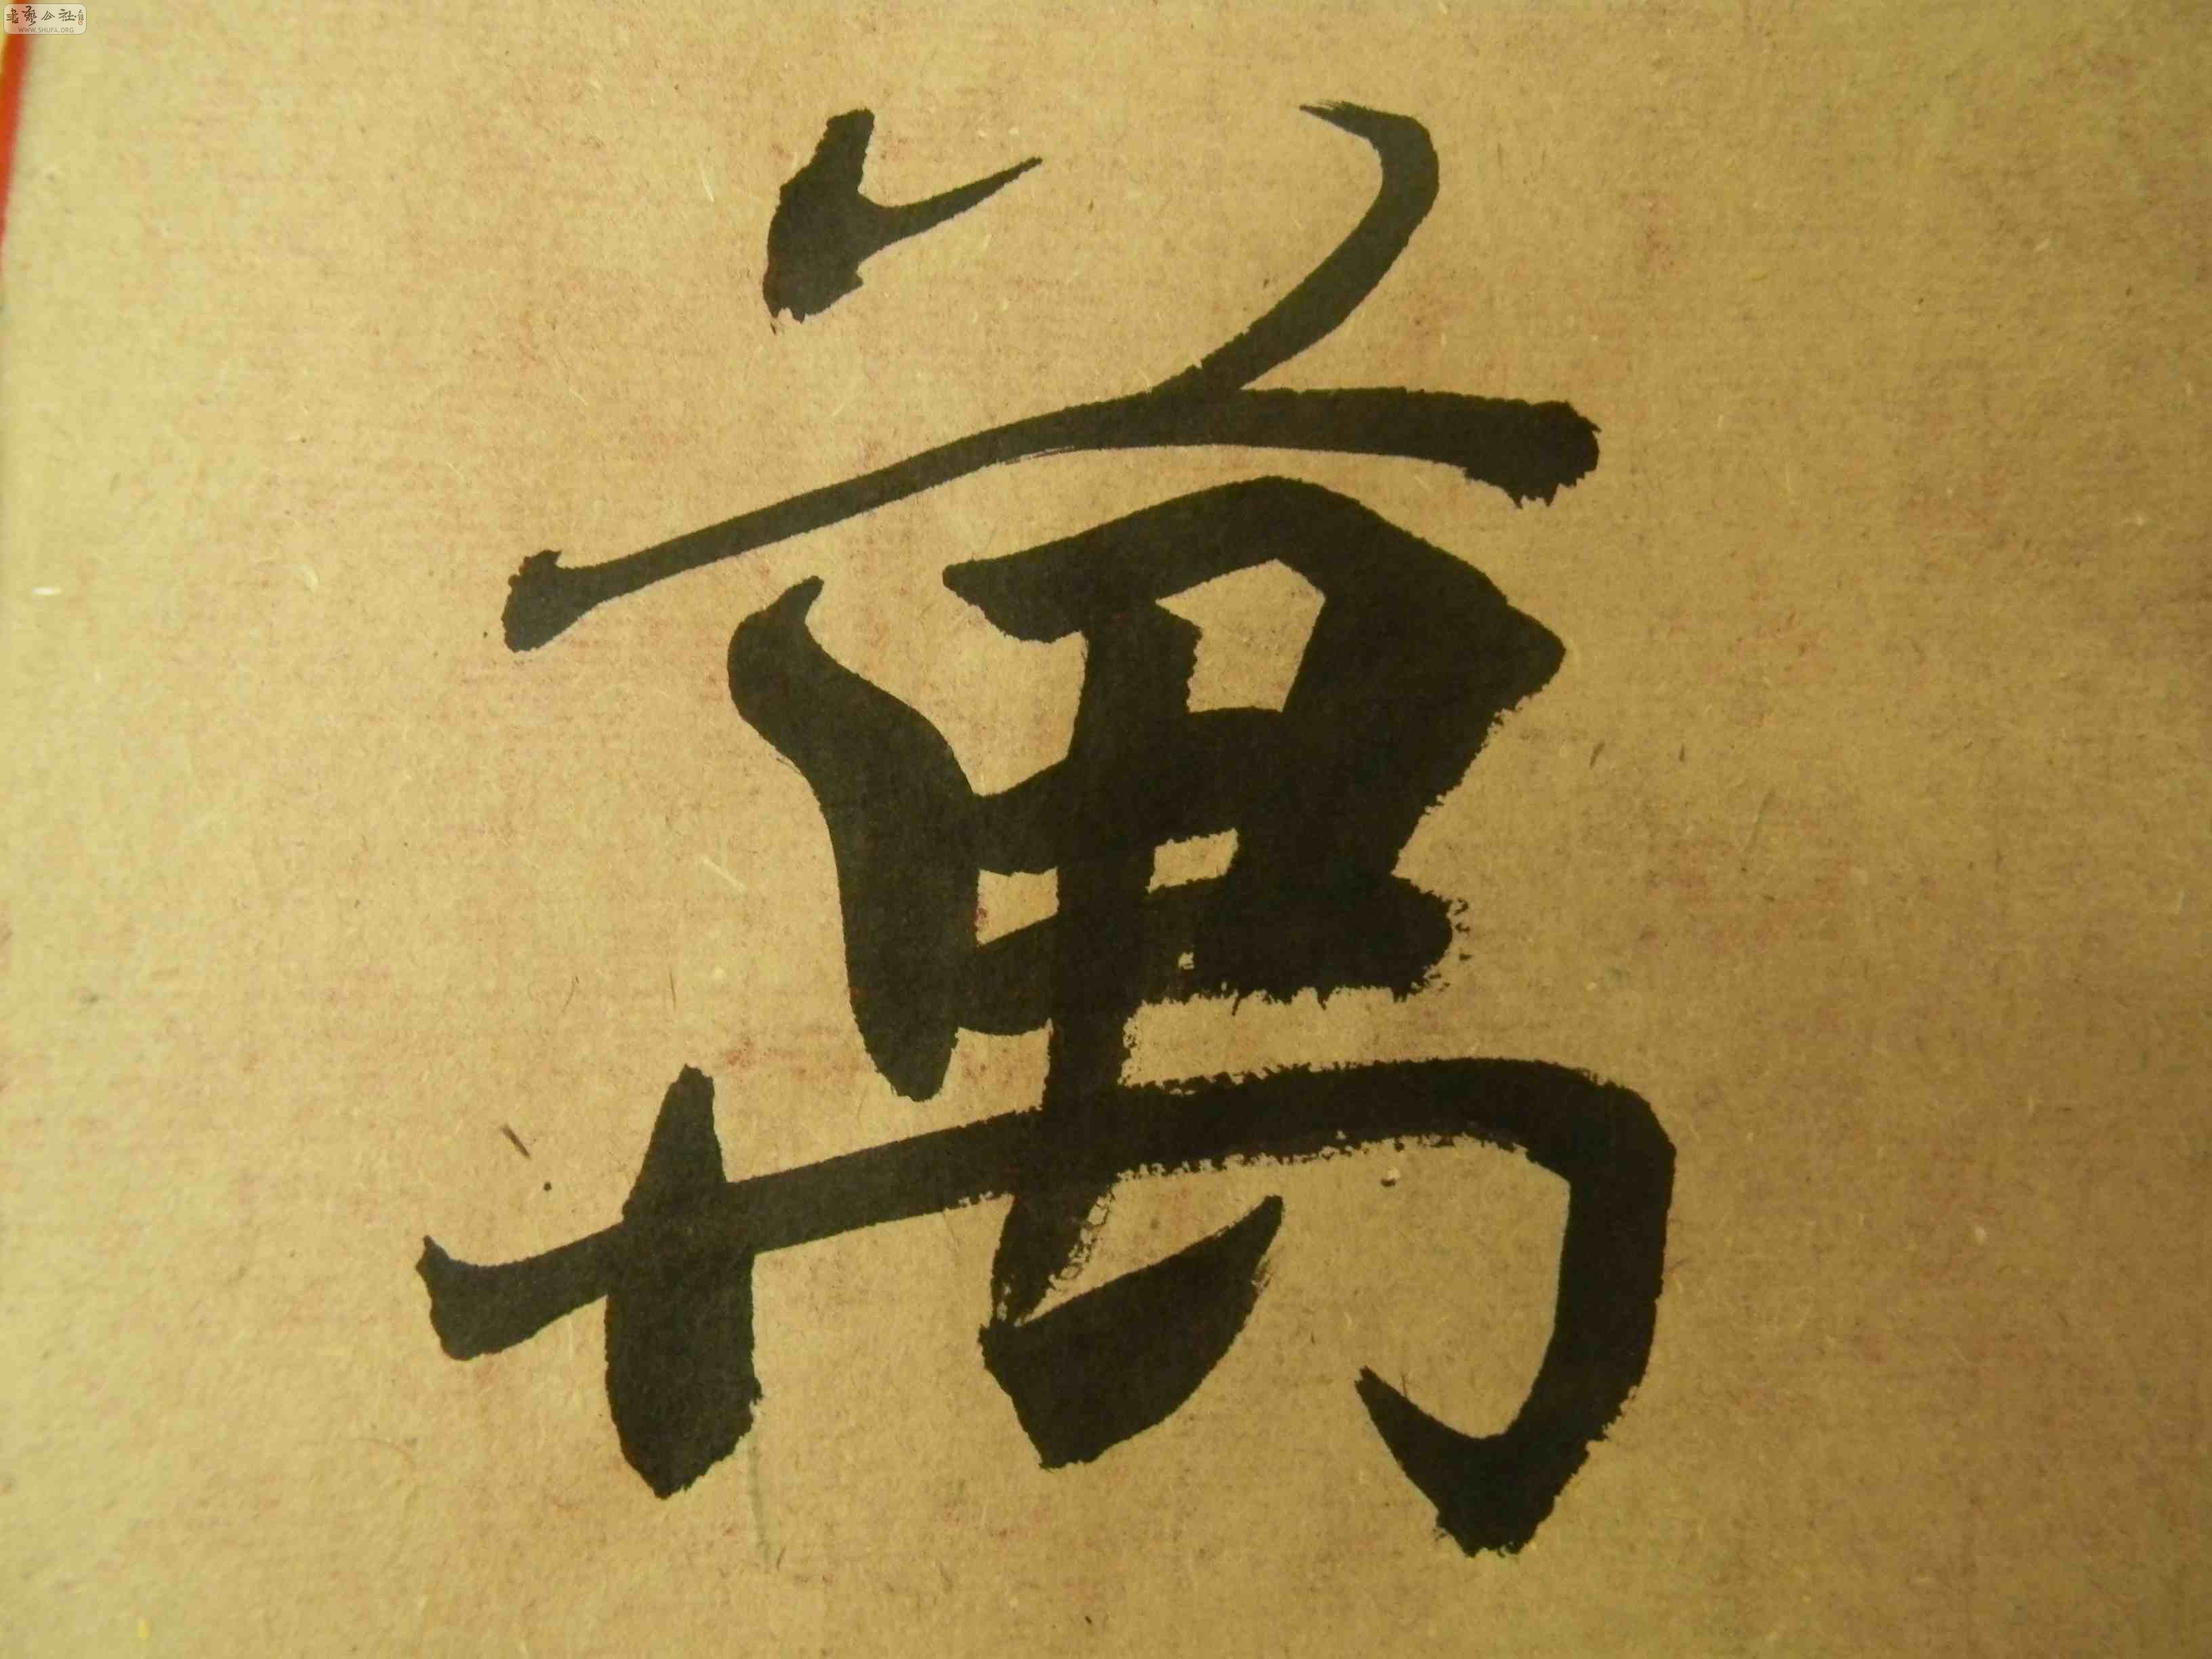 書藝公社
WWW.SHUFA.ORG
萬